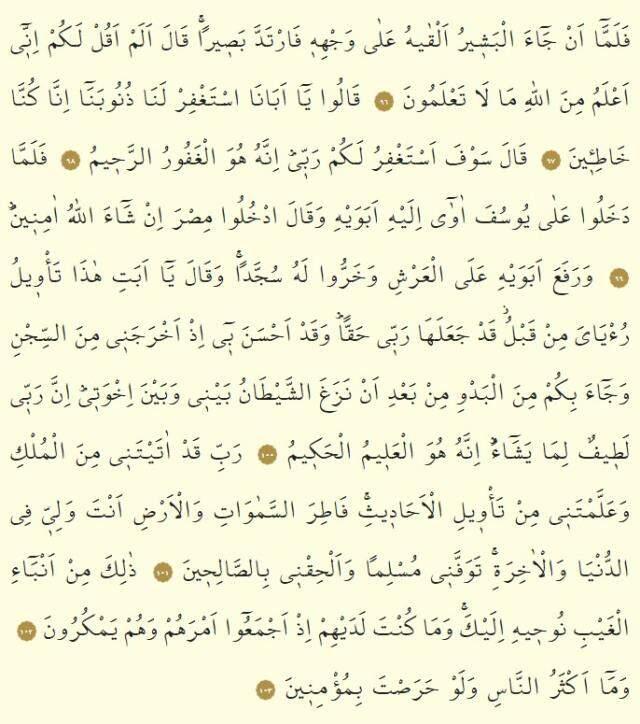 فَلَمَّٓا اَنْ جَٓاءَ الْبَش۪يرُ اَلْقٰيهُ عَلٰى وَجْهِه۪ فَارْتَدَّ بَص۪يراًۚ قَالَ اَلَمْ اَقُلْ لَكُمْ اِنّ۪ٓي
اَعْلَمُ مِنَ اللّٰهِ مَا لَا تَعْلَمُونَ ﴿٩٦﴾ قَالُوا يَٓا اَبَانَا اسْتَغْفِرْ لَنَا ذُنُوبَنَٓا اِنَّا كُنَّا
خَاطِـ۪ٔينَ ﴿٩٧﴾ قَالَ سَوْفَ اَسْتَغْفِرُ لَكُمْ رَبّ۪يۜ اِنَّهُ هُوَ الْغَفُورُ الرَّح۪يمُ ﴿٩٨﴾ فَلَمَّا
دَخَلُوا عَلٰى يُوسُفَ اٰوٰٓى اِلَيْهِ اَبَوَيْهِ وَقَالَ ادْخُلُوا مِصْرَ اِنْ شَٓاءَ اللّٰهُ اٰمِن۪ينَۜ
﴿٩٩﴾ وَرَفَعَ اَبَوَيْهِ عَلَى الْعَرْشِ وَخَرُّوا لَهُ سُجَّداًۚ وَقَالَ يَٓا اَبَتِ هٰذَا تَأْو۪يلُ
رُءْيَايَ مِنْ قَبْلُۘ قَدْ جَعَلَهَا رَبّ۪ي حَقاًّۜ وَقَدْ اَحْسَنَ ب۪ٓي اِذْ اَخْرَجَن۪ي مِنَ السِّجْنِ
وَجَٓاءَ بِكُمْ مِنَ الْبَدْوِ مِنْ بَعْدِ اَنْ نَزَغَ الشَّيْطَانُ بَيْن۪ي وَبَيْنَ اِخْوَت۪يۜ اِنَّ رَبّ۪ي
لَط۪يفٌ لِمَا يَشَٓاءُۜ اِنَّهُ هُوَ الْعَل۪يمُ الْحَك۪يمُ ﴿١٠٠﴾ رَبِّ قَدْ اٰتَيْتَن۪ي مِنَ الْمُلْكِ
وَعَلَّمْتَن۪ي مِنْ تَأْو۪يلِ الْاَحَاد۪يثِۚ فَاطِرَ السَّمٰوَاتِ وَالْاَرْضِ اَنْتَ وَلِيّ۪ فِي
الدُّنْيَا وَالْاٰخِرَةِۚ تَوَفَّن۪ي مُسْلِماً وَاَلْحِقْن۪ي بِالصَّالِح۪ينَ ﴿١٠١﴾ ذٰلِكَ مِنْ اَنْبَٓاءِ
الْغَيْبِ نُوح۪يهِ اِلَيْكَۚ وَمَا كُنْتَ لَدَيْهِمْ اِذْ اَجْمَعُٓوا اَمْرَهُمْ وَهُمْ يَمْكُرُونَ ﴿١٠٢﴾
وَمَٓا اَكْثَرُ النَّاسِ وَلَوْ حَرَصْتَ بِمُؤْمِن۪ينَ ﴿١٠٣﴾